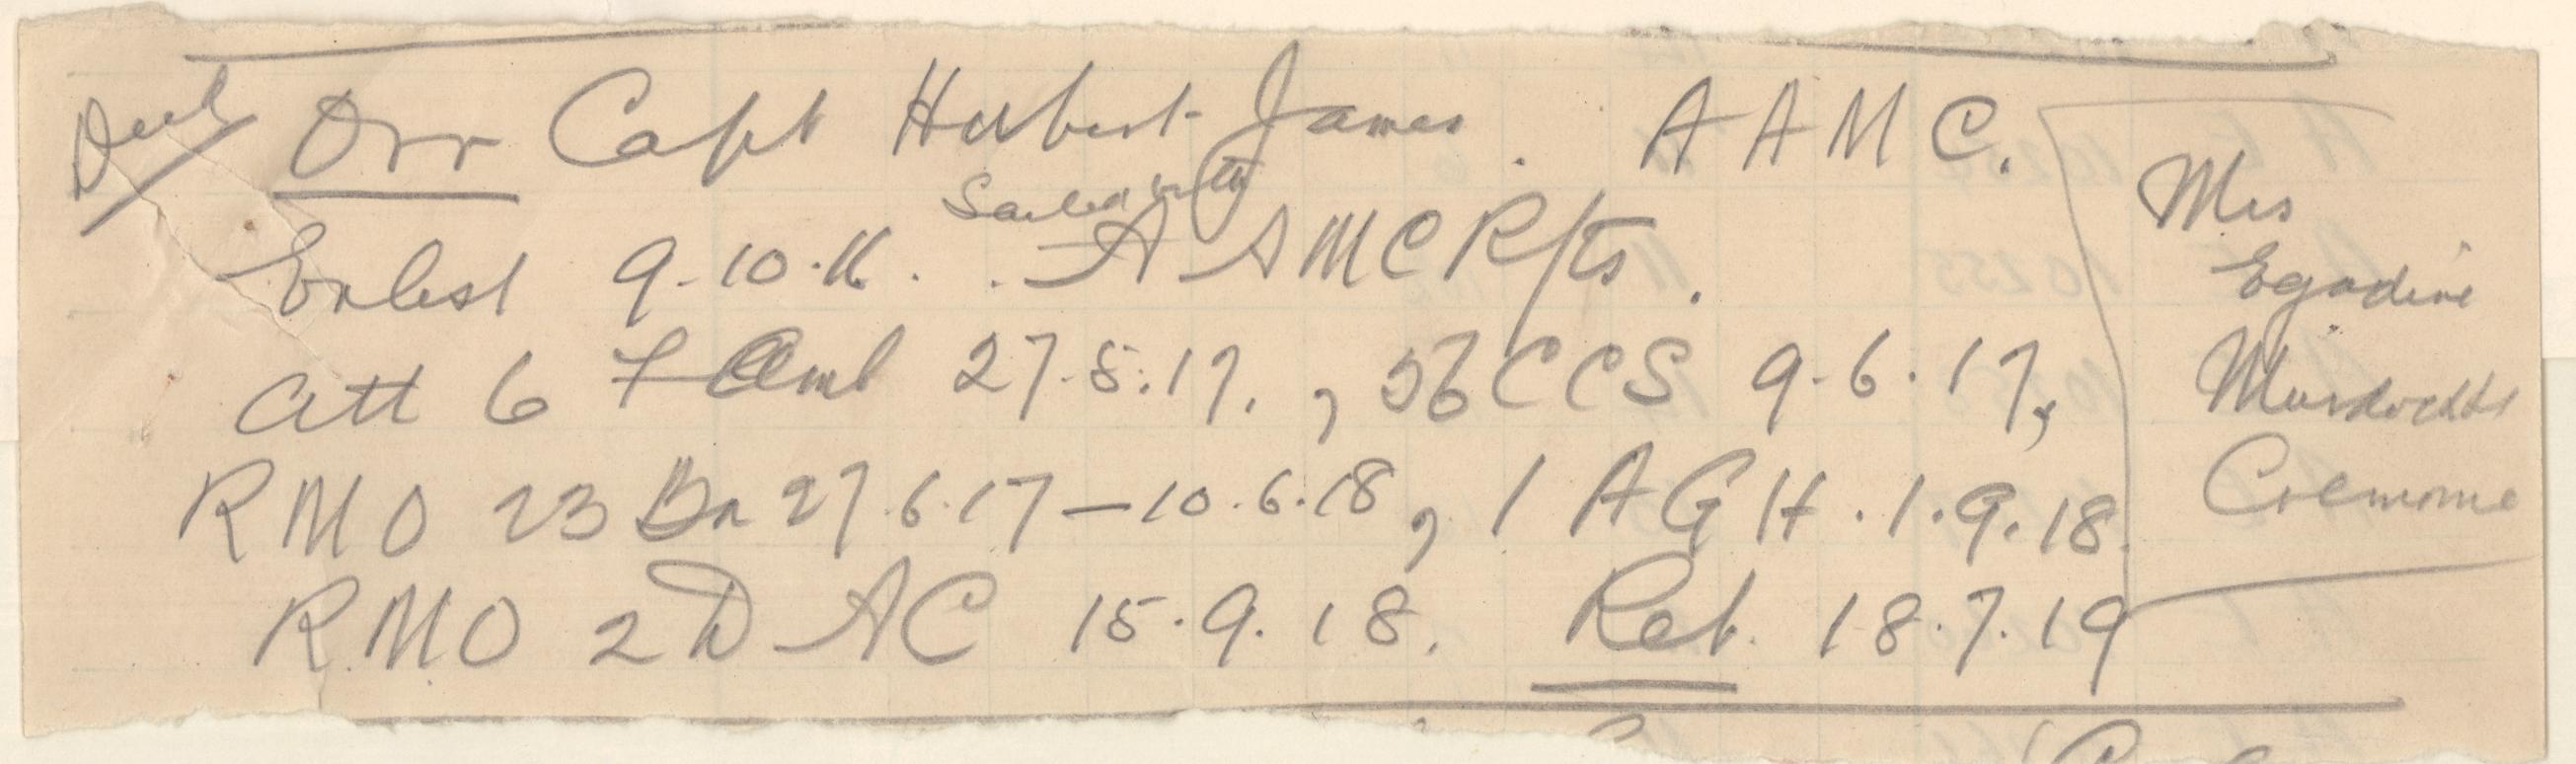 Orr Capt Herbert James. AAMC.
Sailed with
Enlist 9.10.16. . AAMC Rfts.
Att 6 F Amb 27.5.17., 56 CCS 9.6.17,
RMO 23 Bn 27.6.17 – 10.6.18, 1 AGH. 1.9.18.
RMO 2 DAC 15.9.18. Ret. 18.7.19
Mrs
Murdoch St
Cremorne